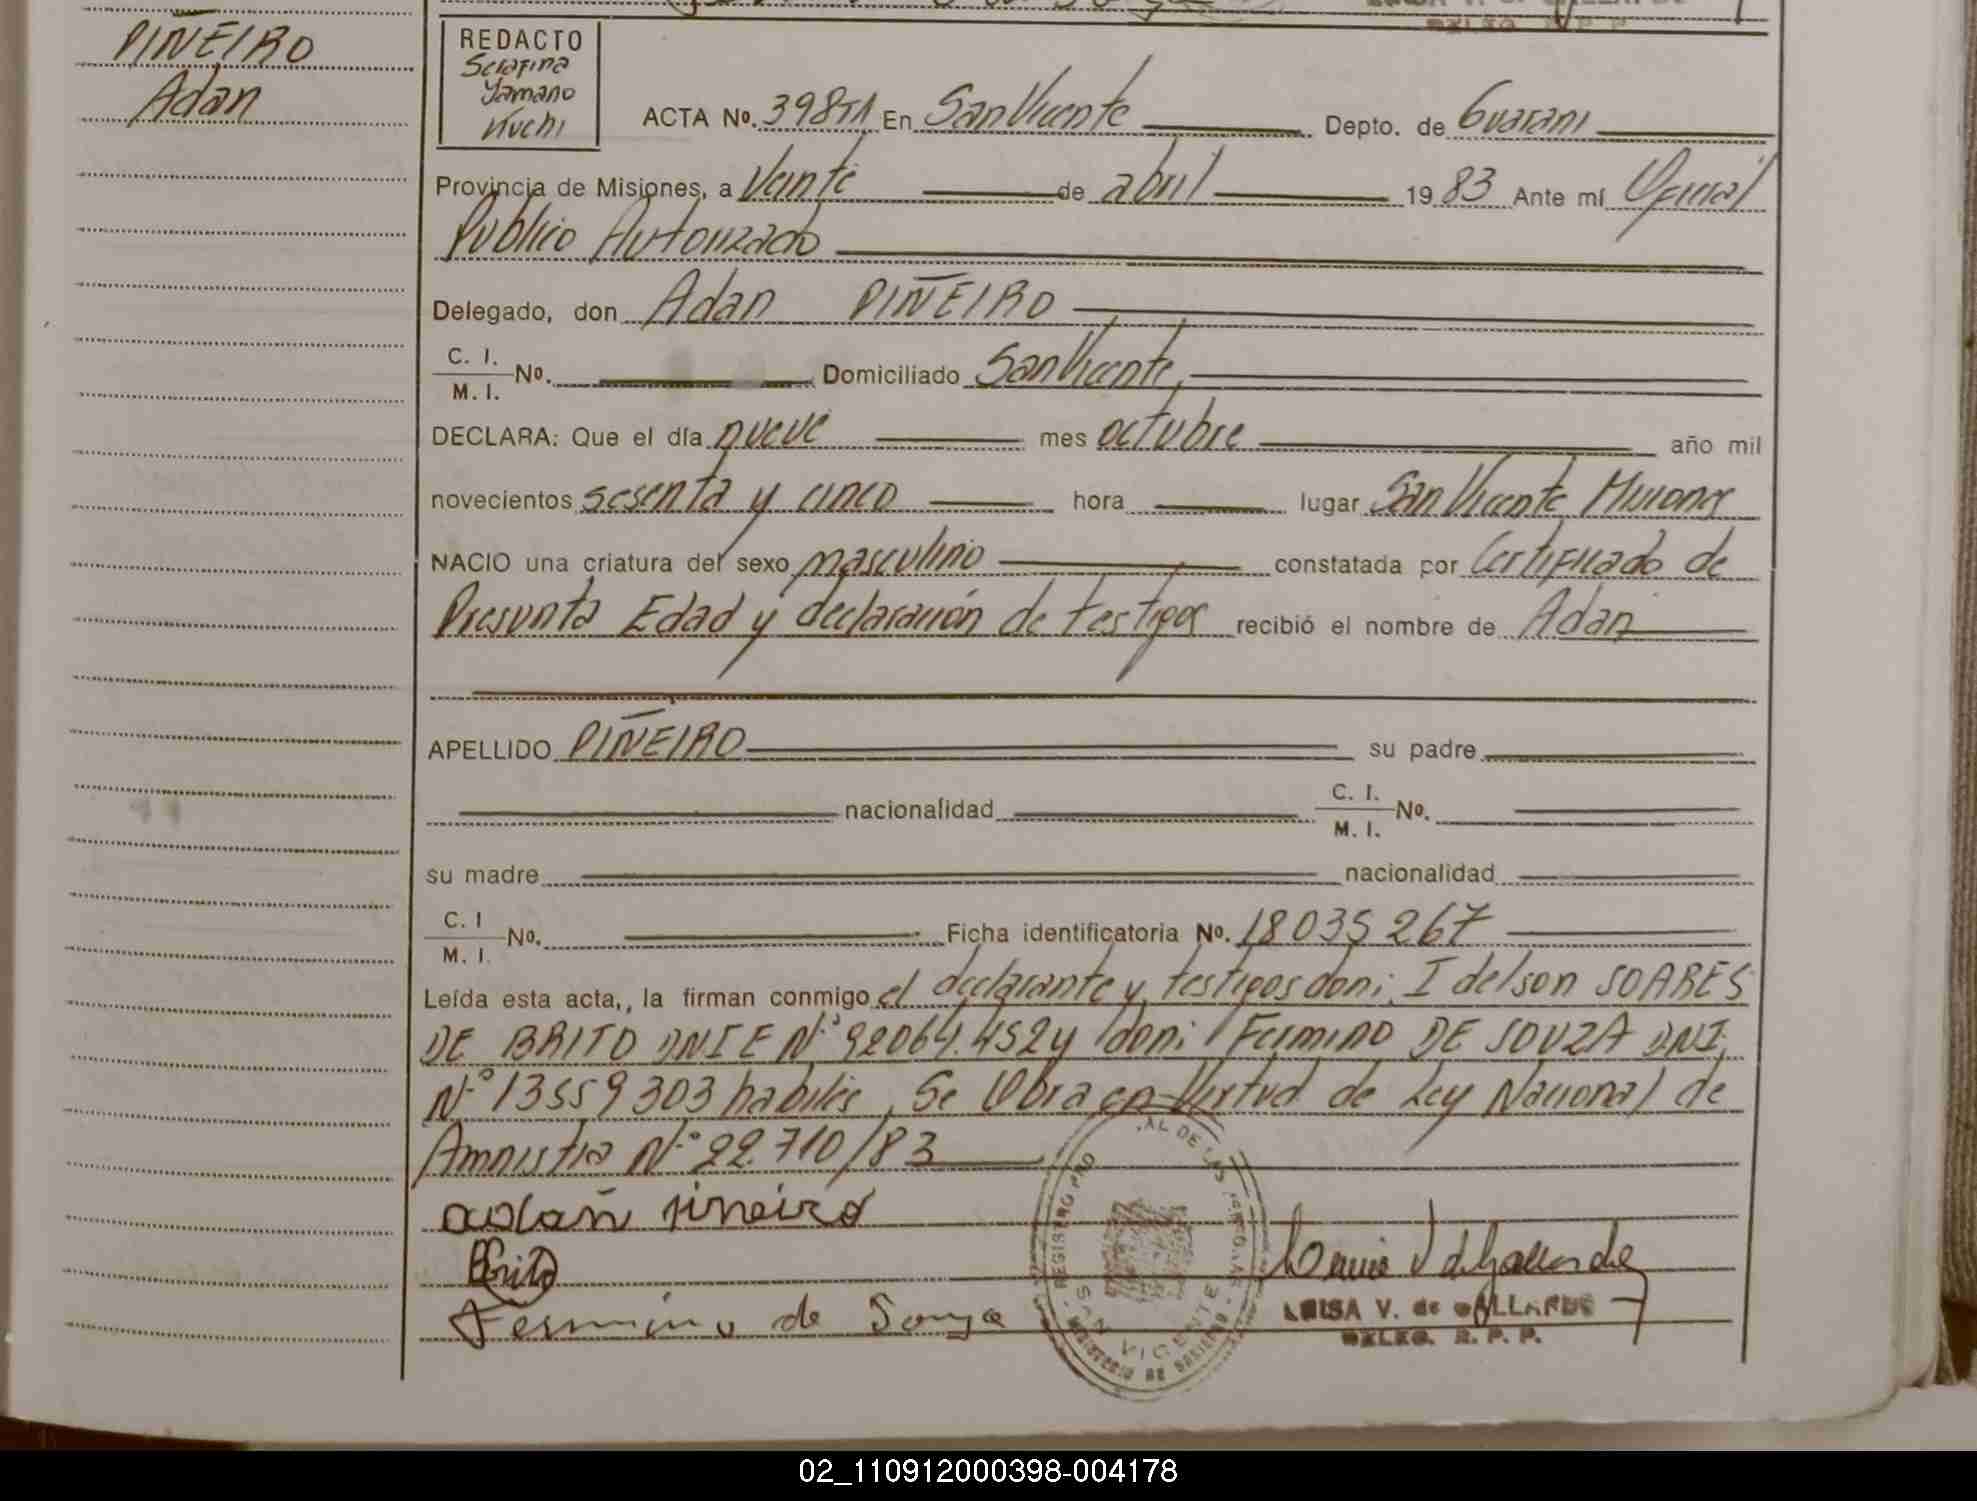 PIÑEIRO
Adan
REDACTO
Serafina
Yamano
Kuchi
ACTA No. 398 T1 En San Vicente Depto. de Guarani
Provincia de Misiones, a Veinte de abril 1983 Ante mí Oficial
Publico Autorizado
Delegado, don Adan PIÑEIRO
C. I.
M. I. No. Domiciliado San Vicente,
DECLARA: Que el día nueve mes octubre año mil
novecientos sesenta y cinco hora lugar San Vicente Misiones
NACIO una criatura del sexo masculino constatada por Certificado de
Presunta Edad y declaración de testigos recibió el nombre de Adan
APELLIDO PIÑEIRO su padre
nacionalidad C. I.
M. I. No.
su madre nacionalidad
C. I
M. I. No. Ficha identificatoria No. 18035267
Leída esta acta,, la firman conmigo el declarante y testigos don: Idelson SOARES
DE BRITO DNIE Nº 92064.452 y don: Fermino DE SOUZA DNI.
Nº 13559303 habiles, Se Obra en Virtud de Ley Nacional de
Amnistia Nº 22.710/83
adañ pineiro
Brito
Fermino de Souza
LUISA V. de GALLARDO
DELEG. R. P. P.
SAN VICENTE
02_110912000398-004178